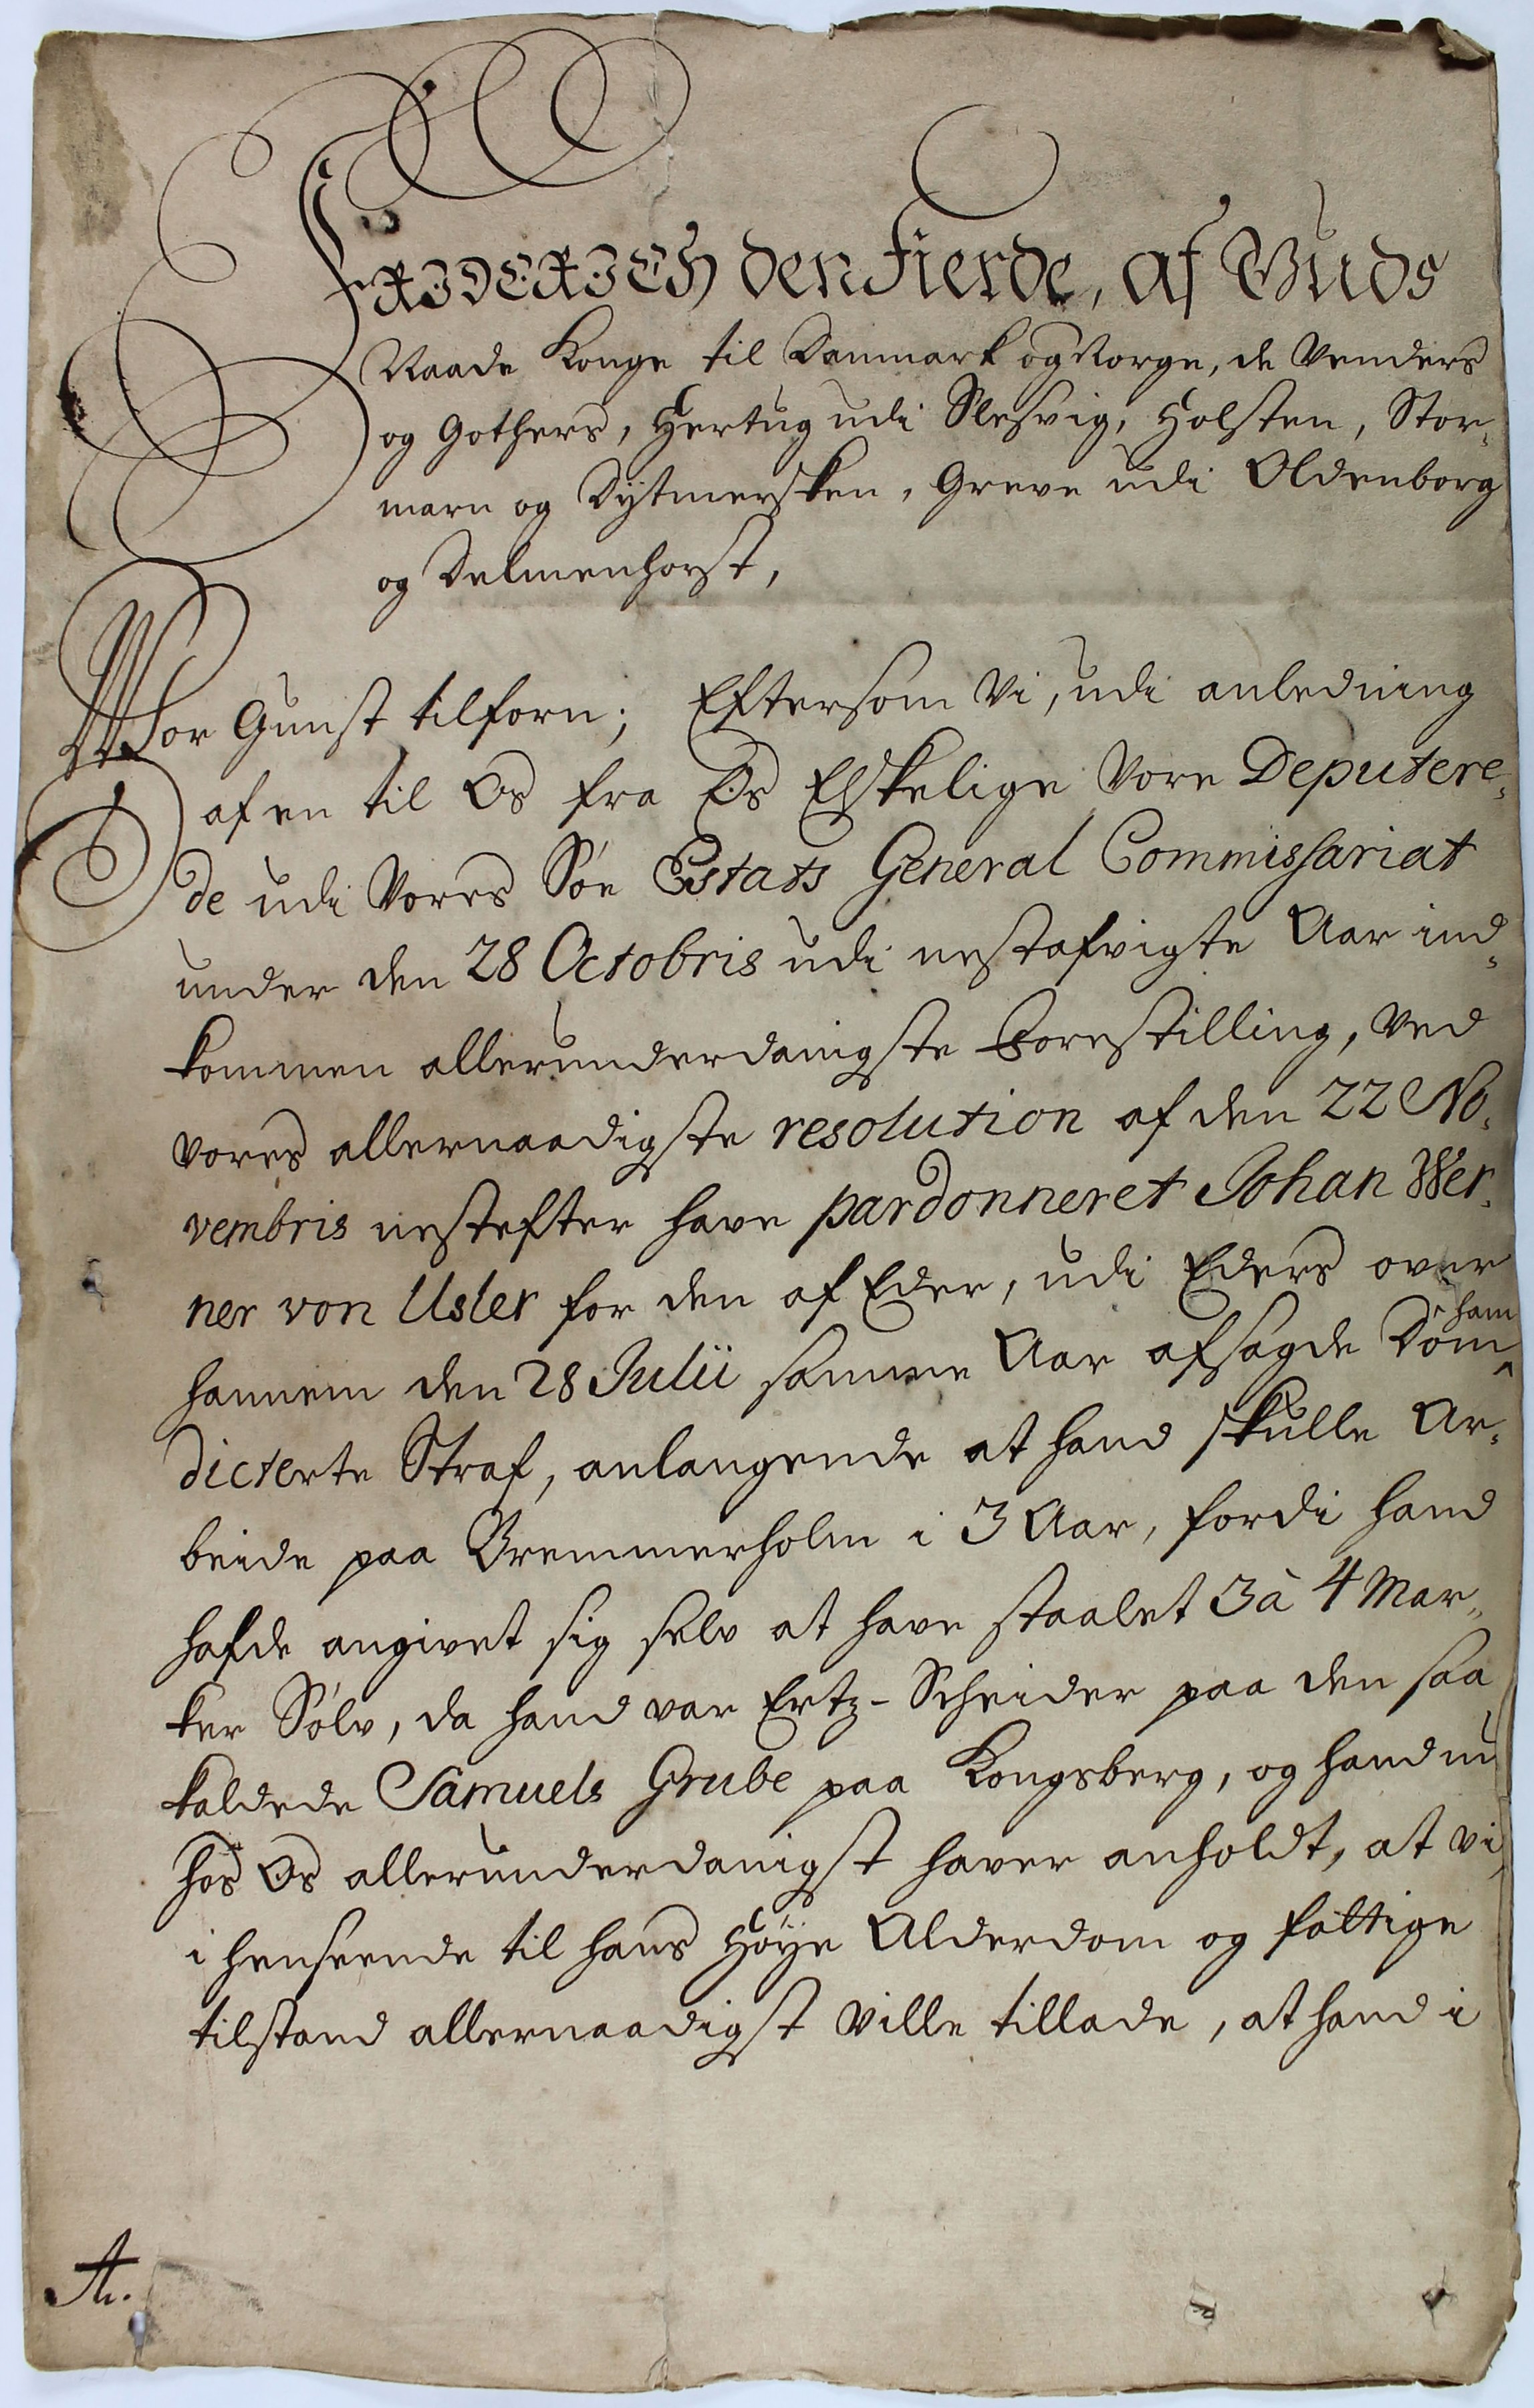 FRIDERICH den Fierde, af Guds
Naade Konge til Danmark og Norge, de Venders
og Gothers, Hertug udi Slesvig, Holsten, Stor-
marn og Dytmersken, Greve udi Oldenborg
og Delmenhorst,
Vor Gunst tilforn; Eftersom Vi, udi anledning
af en til Os fra Os Elskelige Vore Deputere-
de udi Vores Söe Estats General Commissariat
under den 28 Octobris udi nestafvigte Aar ind-
kommen allerunderdanigste Forestilling, Ved
vores allernaadigste resolution af den 22 No-
vembris nestefter have pardonneret Johan Wer-
ner von Usler for den af Eder, udi Eders over
hannem den 28 Julii samme Aar afsagde Dom ham
dicterte Straf, anlangende at hand skulle Ar-
beide paa Bremmerholm i 3 Aar, fordi hand
hafde angivet sig selv at have staalet 3 à 4 Mar-
ker Sölv, da hand var Ertz-Scheider paa den saa
kaldede Samuels Grube paa Kongsberg, og hand nu
hos Os allerunderdanigst haver anholdt, at Vi
i henseende til hans Höye Alderdom og fattige
tilstand allernaadigst Ville tillade, at hand i